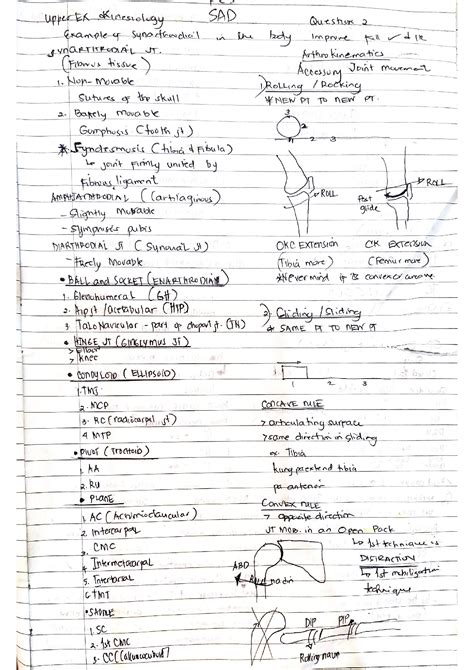 Upper Ex Kinesiology
SAD
Example of Synarthrodial in the body
SYNARTHRODIAL JT.
(Fibrous tissue)
1. Non-Movable
Sutures of the skull
2. Barely Movable
Gomphosis (tooth jt)
* Syndesmosis (tibia & Fibula)
↳ joint firmly united by
Fibrous ligament
AMPHIARTHRODIAL (Cartilaginous)
- Slightly Movable
- Symphysis pubis
DIARTHRODIAL JT (Synovial Jt)
- Freely Movable
• BALL and SOCKET (ENARTHRODIAL)
1. Glenohumeral (GH)
2. Hip jt /acetabular (HIP)
3. TaloNavicular - part of chopart jt. (TN)
• HINGE JT (GINGLYMUS JT)
> Elbow
> knee
• CONDYLOID (ELLIPSOID)
1. TMJ
2. MCP
3. RC (radiocarpal jt)
4 MTP
• PIVOT (Trochoid)
1. AA
2. RU
• PLANE
1. AC (Acromioclavicular)
2. Intercarpal
3. CMC
4. Intermetacarpal
5. Intertarsal
6. TMT
• SADDLE
1. SC
2. 1st CMC
3. CC
Question 2
Improve
Arthrokinematics
Accessory Joint movement
1) Rolling / Rocking
* NEW PT TO NEW PT.
1 2 3
ROLL
Post
glide
ROLL
OKC EXTENSION
CK EXTENSION
(Tibia more)
(Femur more)
*Nevermind if convex concave
2) Gliding / Sliding
* SAME PT TO NEW PT
1 2 3
CONCAVE RULE
> articulating surface
> same direction in sliding
ex. Tibia
kung pa extend tibia
pa anterior
CONVEX RULE
> opposite direction
JT MOB. in an Open Pack
↳ 1st technique is
DISTRACTION
↳ 1st mobilization
technique
ABD
DIP
PIP